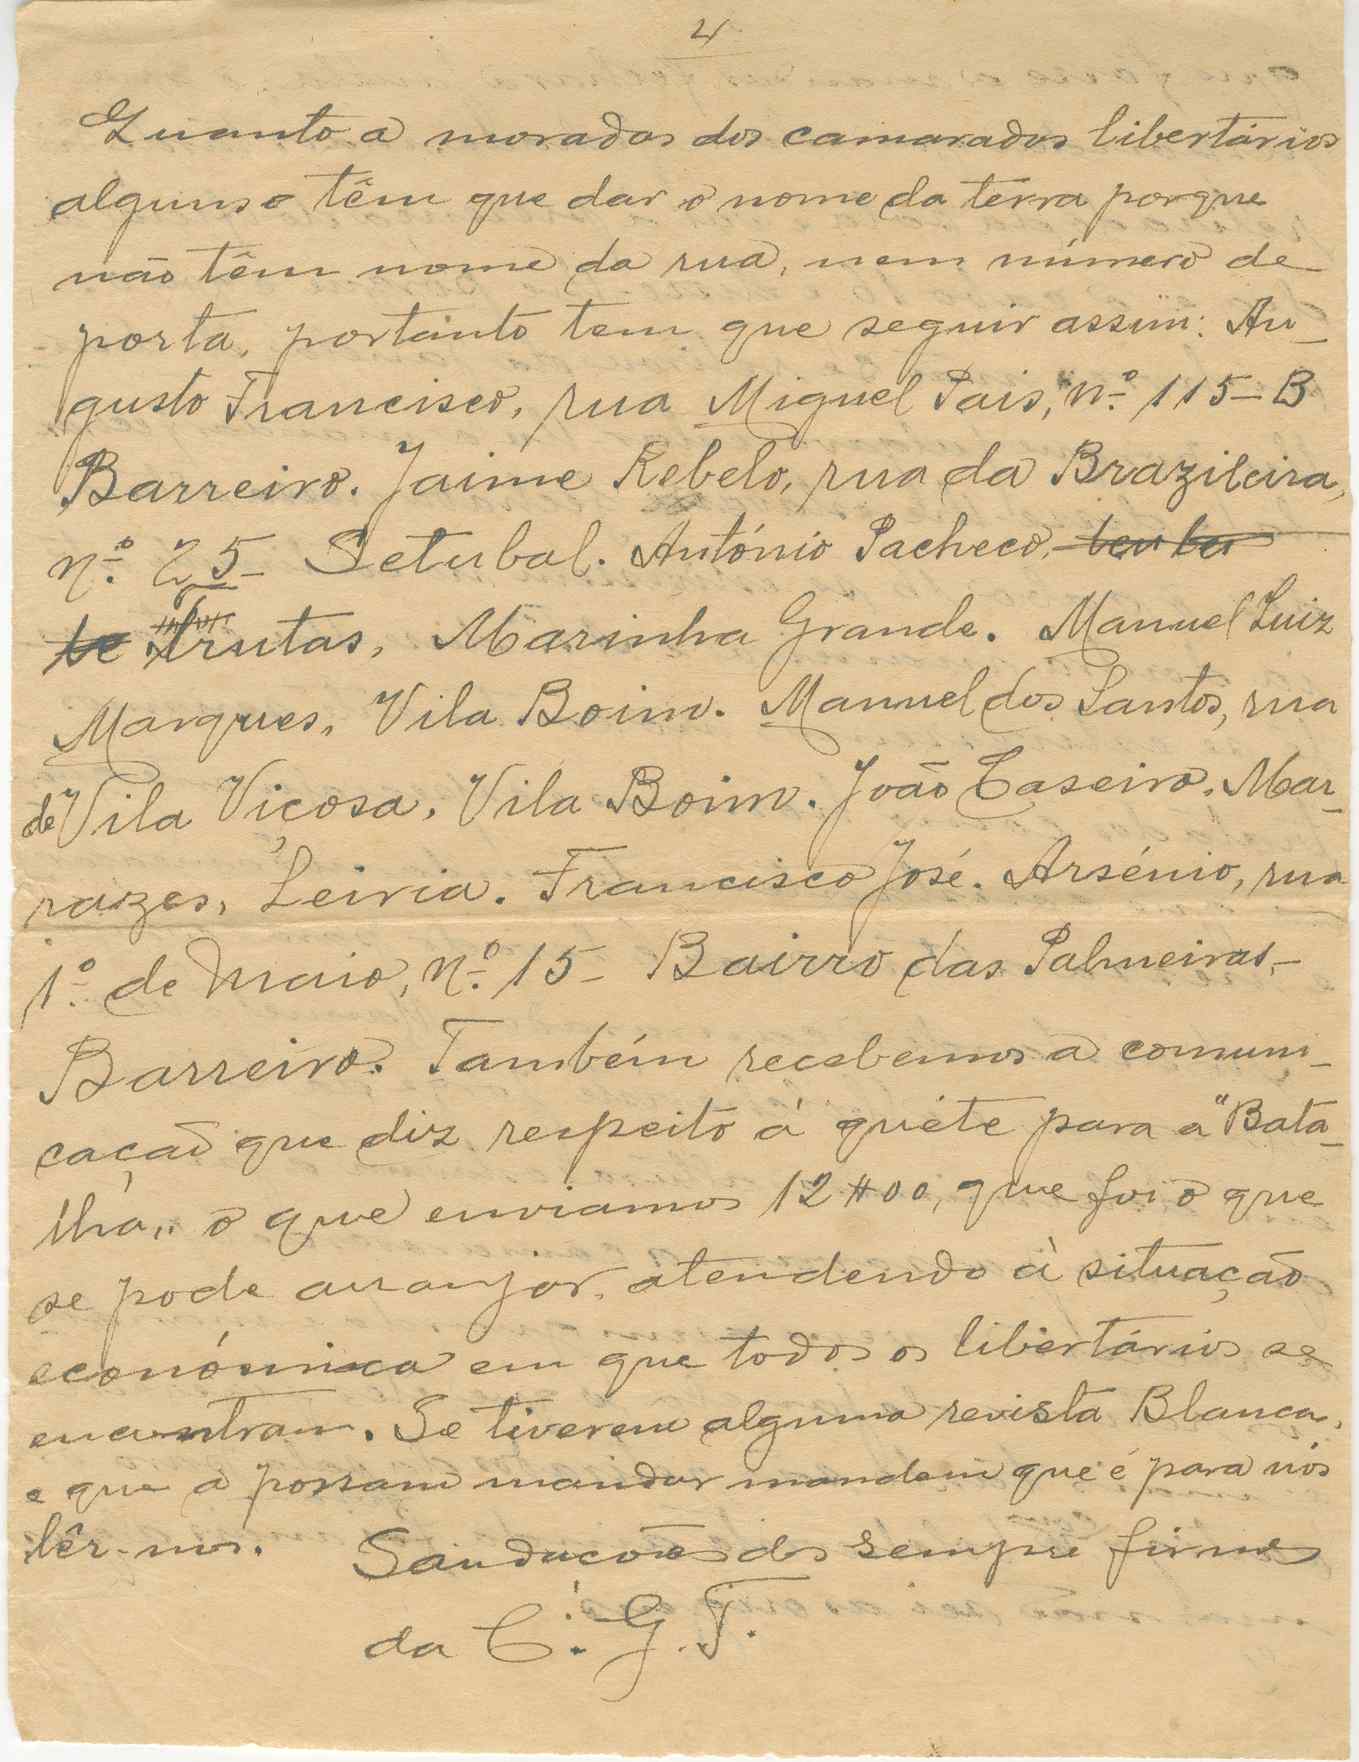 4
Quanto a moradas dos camaradas libertários
alguns têm que dar o nome da terra porque
não têm nome da rua, nem número de
porta, portanto tem que seguir assim: Au-
gusto Francisco, rua Miguel Pais, nº 115-B
Barreiro. Jaime Rebelo, rua da Brazileira,
nº 25- Setubal. António Pacheco,
Trutas, Marinha Grande. Manuel Luiz
Marques, Vila Boim. Manuel dos Santos, rua
de Vila Viçosa, Vila Boim. João Caseiro, Mar-
razes, Leiria. Francisco José Arsénio, rua
1º de Maio, nº 15- Bairro das Palmeiras-
Barreiro. Também recebemos a comuni-
cação que diz respeito á quéte para a "Bata-
lha„ o que enviamos 12$00, que foi o que
se pode arranjar, atendendo á situação
económica em que todos os libertários se
encontram. Se tiverem alguma revista Blanca,
e que a possam mandar mandem que é para nós
lêr-mos. Sauducoões dos sempre firmes
da C. G. T.